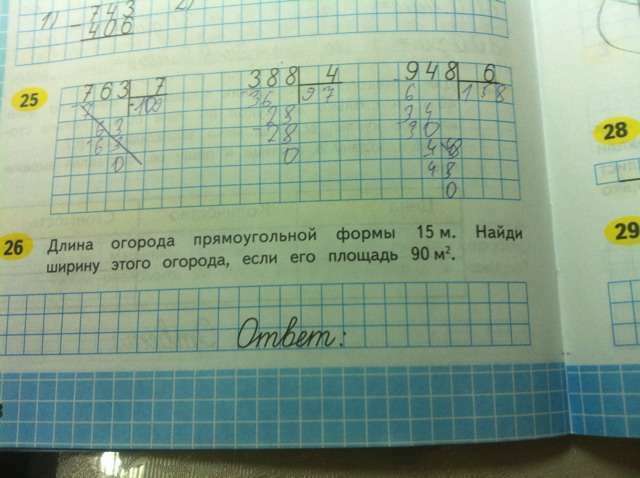 1) - 743 2)
406
25
763 7 388 4 948 6
7 109 36 97 6 158
63 28 34
63 28 30
0 0 48
48
0
28
26 Длина огорода прямоугольной формы 15 м. Найди
ширину этого огорода, если его площадь 90 м².
29
Ответ: